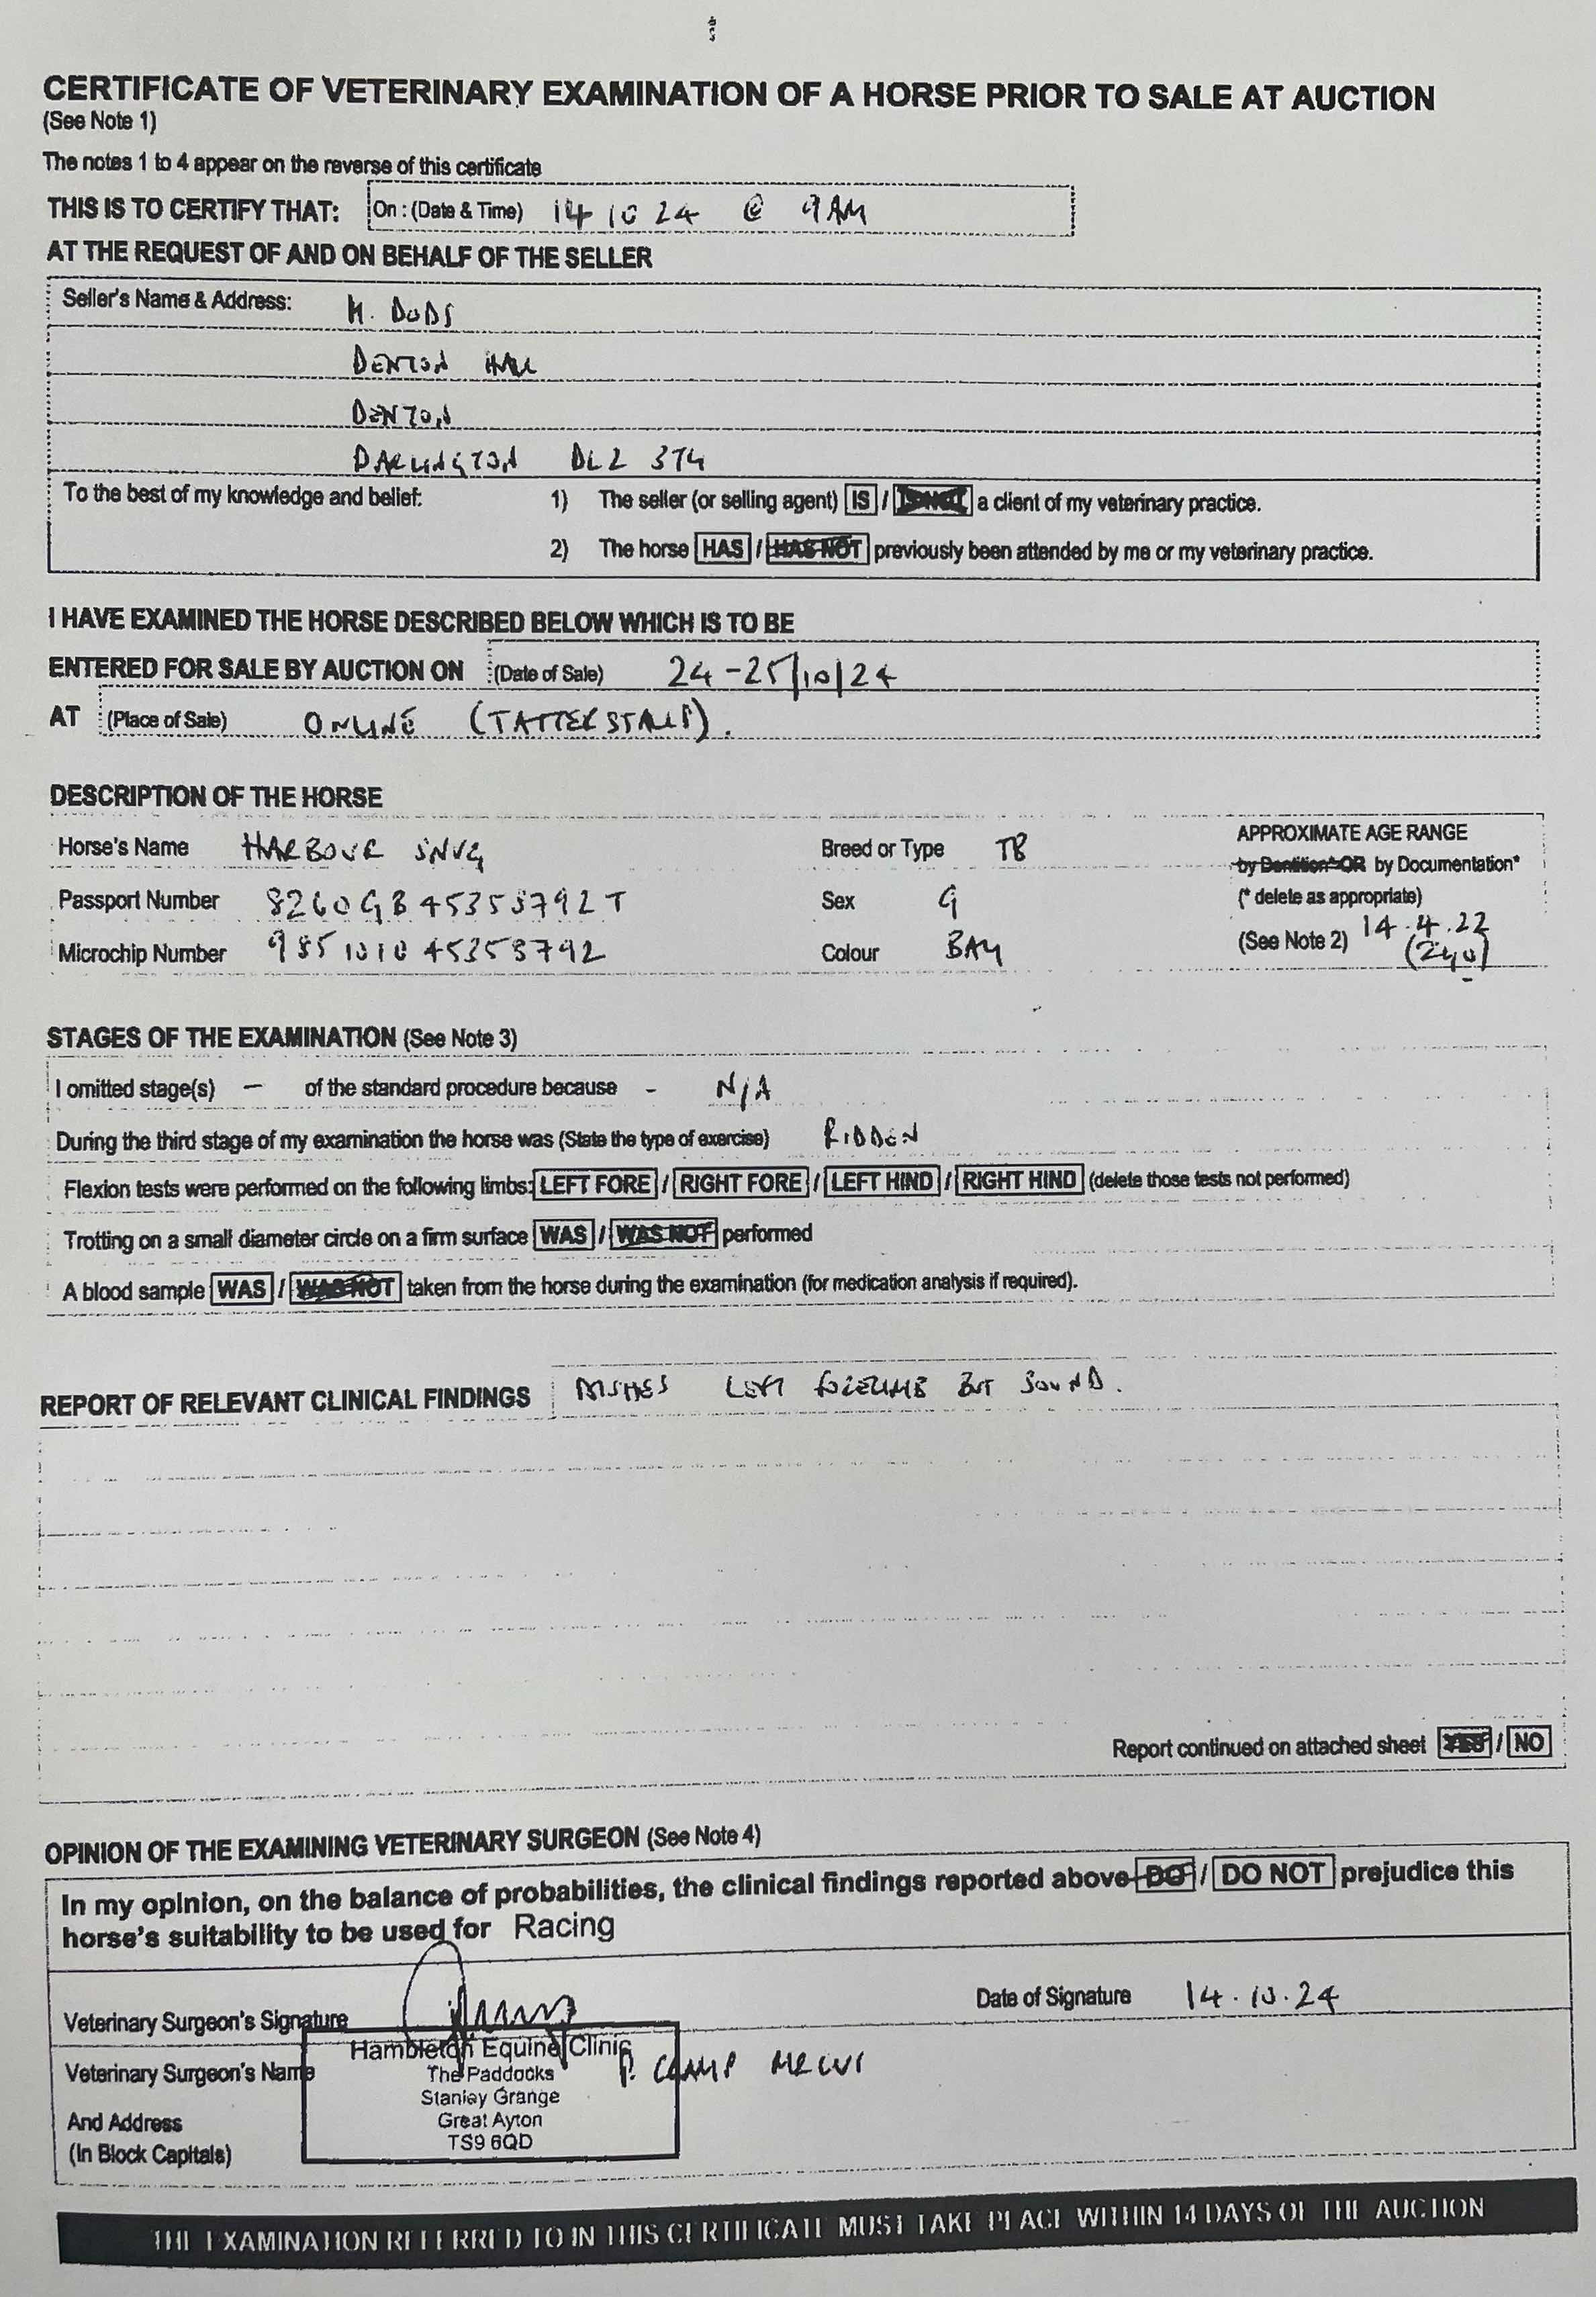 CERTIFICATE OF VETERINARY EXAMINATION OF A HORSE PRIOR TO SALE AT AUCTION
(See Note 1)
The notes 1 to 4 appear on the reverse of this certificate
THIS IS TO CERTIFY THAT: On : (Date & Time) 14 10 24 @ 9AM
AT THE REQUEST OF AND ON BEHALF OF THE SELLER
Seller's Name & Address: M. DODS
DENTON HALL
DENTON
DARLINGTON DL2 3TY
To the best of my knowledge and belief: 1) The seller (or selling agent) IS / IS NOT a client of my veterinary practice.
2) The horse HAS / HAS NOT previously been attended by me or my veterinary practice.
I HAVE EXAMINED THE HORSE DESCRIBED BELOW WHICH IS TO BE
ENTERED FOR SALE BY AUCTION ON (Date of Sale) 24-25/10/24
AT (Place of Sale) ONLINE (TATTERSALLS).
DESCRIPTION OF THE HORSE
Horse's Name HARBOUR SNUG Breed or Type TB APPROXIMATE AGE RANGE
by Dentition* OR by Documentation*
Passport Number 8260GB45353792T Sex G (* delete as appropriate)
Microchip Number 985101045353792 Colour BAY (See Note 2) 14.4.22
(2yo)
STAGES OF THE EXAMINATION (See Note 3)
I omitted stage(s) - of the standard procedure because - N/A
During the third stage of my examination the horse was (State the type of exercise) RIDDEN
Flexion tests were performed on the following limbs: LEFT FORE / RIGHT FORE / LEFT HIND / RIGHT HIND (delete those tests not performed)
Trotting on a small diameter circle on a firm surface WAS / WAS NOT performed
A blood sample WAS / WAS NOT taken from the horse during the examination (for medication analysis if required).
REPORT OF RELEVANT CLINICAL FINDINGS DISHES LEFT FORELIMB BUT SOUND.
Report continued on attached sheet YES / NO
OPINION OF THE EXAMINING VETERINARY SURGEON (See Note 4)
In my opinion, on the balance of probabilities, the clinical findings reported above DO / DO NOT prejudice this
horse's suitability to be used for Racing
Veterinary Surgeon's Signature Date of Signature 14.10.24
Hambleton Equine Clinic
Veterinary Surgeon's Name The Paddocks P. CAMP MRCVS
Stanley Grange
And Address Great Ayton
(In Block Capitals) TS9 6QD
THE EXAMINATION REFERRED TO IN THIS CERTIFICATE MUST TAKE PLACE WITHIN 14 DAYS OF THE AUCTION